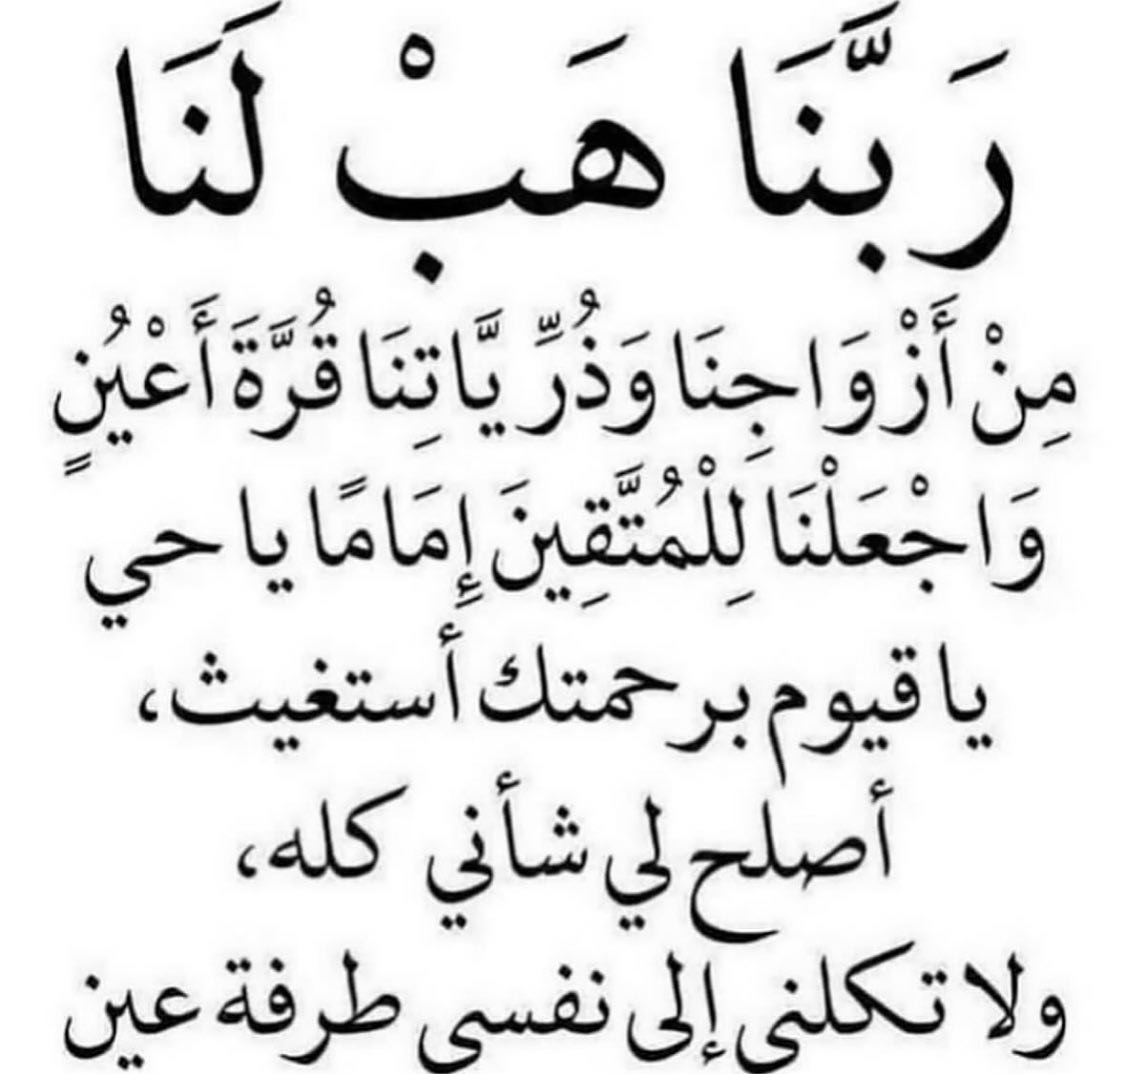 رَبَّنَا هَبْ لَنَا
مِنْ أَزْوَاجِنَا وَذُرِّيَّاتِنَا قُرَّةَ أَعْيُنٍ
وَاجْعَلْنَا لِلْمُتَّقِينَ إِمَامًا يا حي
يا قيوم برحمتك أستغيث،
أصلح لي شأني كله،
ولا تكلني إلى نفسي طرفة عين